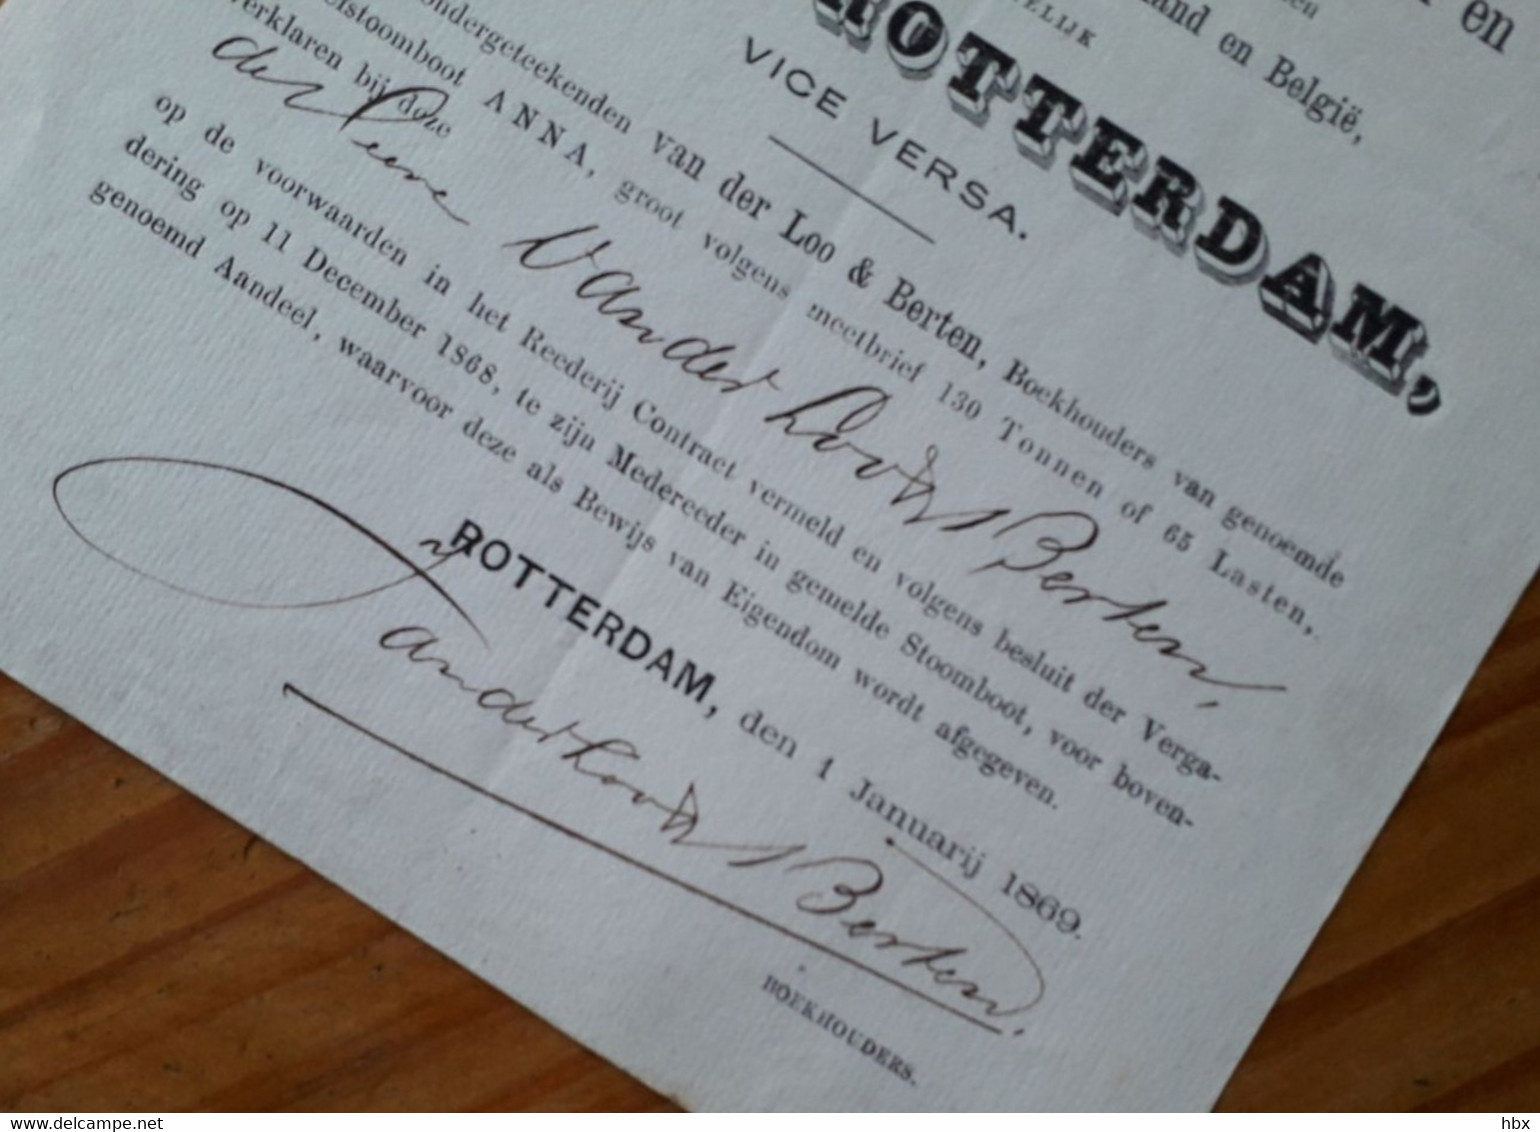 en
land en België,
ROTTERDAM,
VICE VERSA.
ondergeteekenden van der Loo & Berten, Boekhouders van genoemde
stoomboot ANNA, groot volgens meetbrief 130 Tonnen of 65 Lasten,
verklaren bij deze
Van der Loo & Berten,
op de voorwaarden in het Reederij Contract vermeld en volgens besluit der Verga-
dering op 11 December 1868, te zijn Medereeder in gemelde Stoomboot, voor boven-
genoemd Aandeel, waarvoor deze als Bewijs van Eigendom wordt afgegeven.
ROTTERDAM, den 1 Januarij 1869.
Van der Loo & Berten
BOEKHOUDERS.
www.delcampe.net
hbx